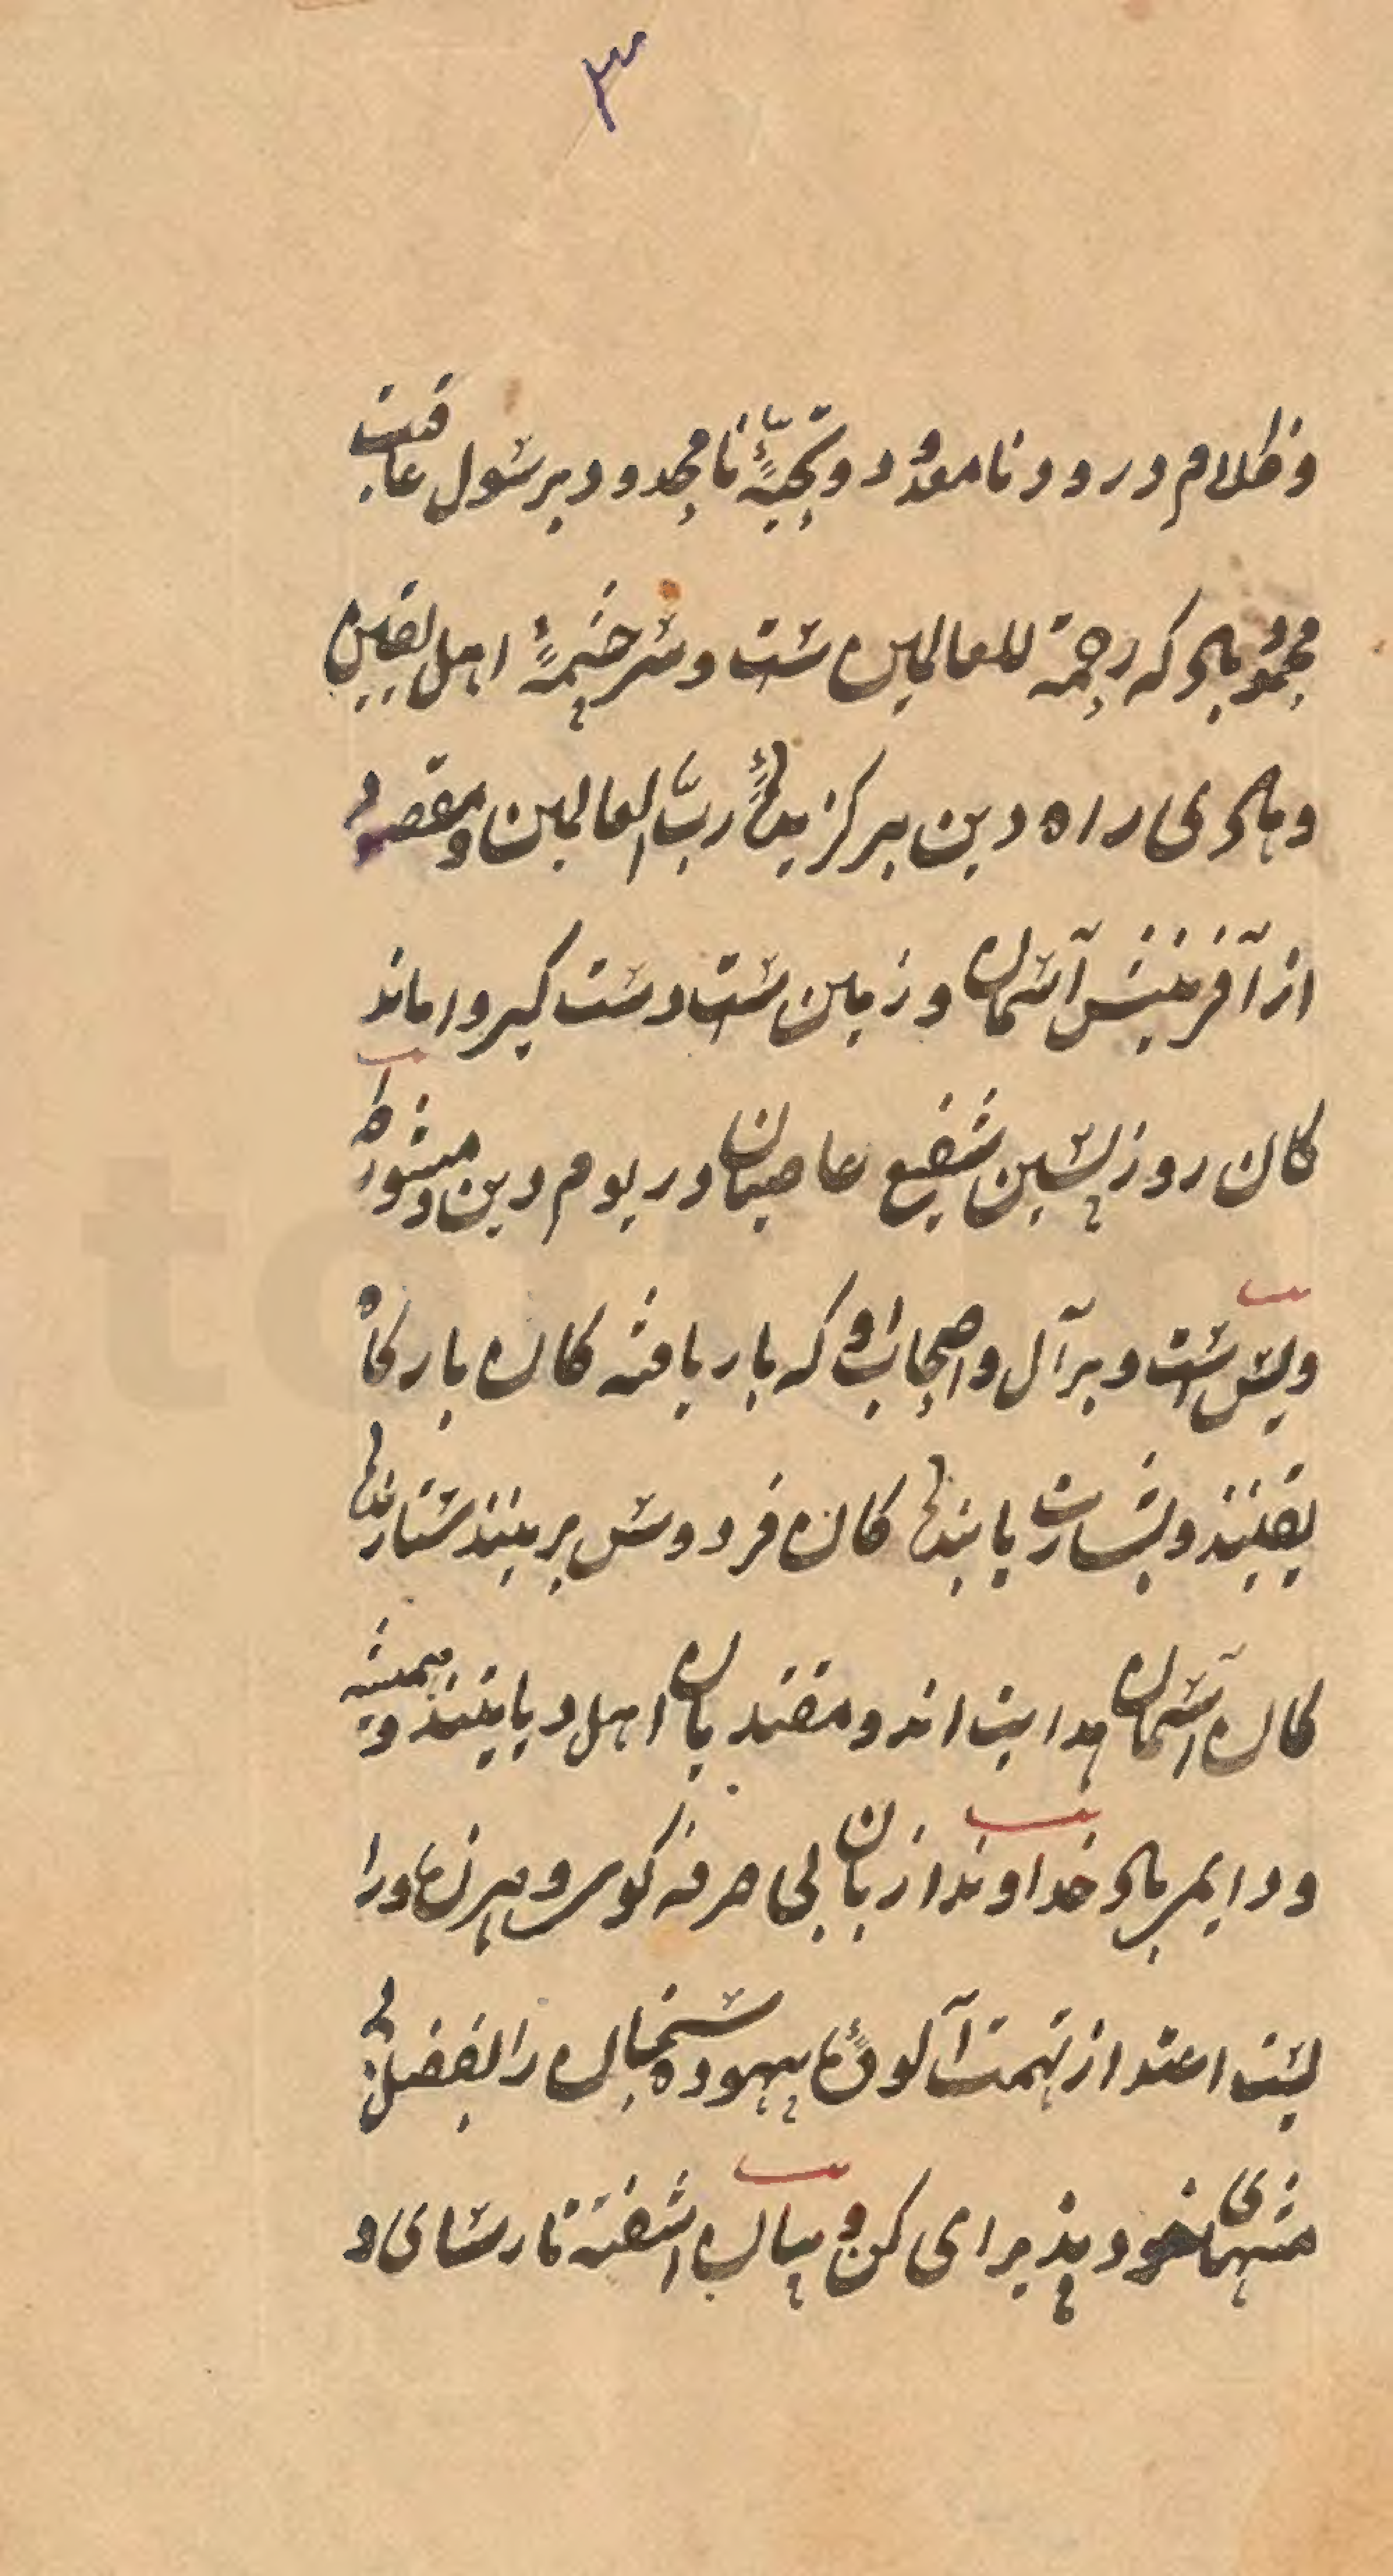 ۳
و ظلام درود نامعدود و تحیّۀ نامحدود بر رسول عاقبت
محمود باد که رحمة للعالمین ست و سرچشمۀ اهل یقین
و هادی راه دین برگزیدۀ ربّ العالمین و مقصود
از آفرینش آسمان و زمین ست دست گیر واماند
کان روز پسین شفیع عاصیان در یوم دین و منشور
ویس ست و بر آل و اصحاب او که بار یافته کان بارگاه
یقینند و بشارت یابندۀ کان فردوس برینند ستارۀ
کان آسمان هدایت اند و مقتدیان اهل دیانند و همیشه
و دایم باد خداوندا زبان بی صرفه گوی و هرزه درا
بست اعتذار از تهمت آلودۀ بیهوده سنجان را بفضل
منتهای خود پذیرای کن و بیان آشفته نارسای و